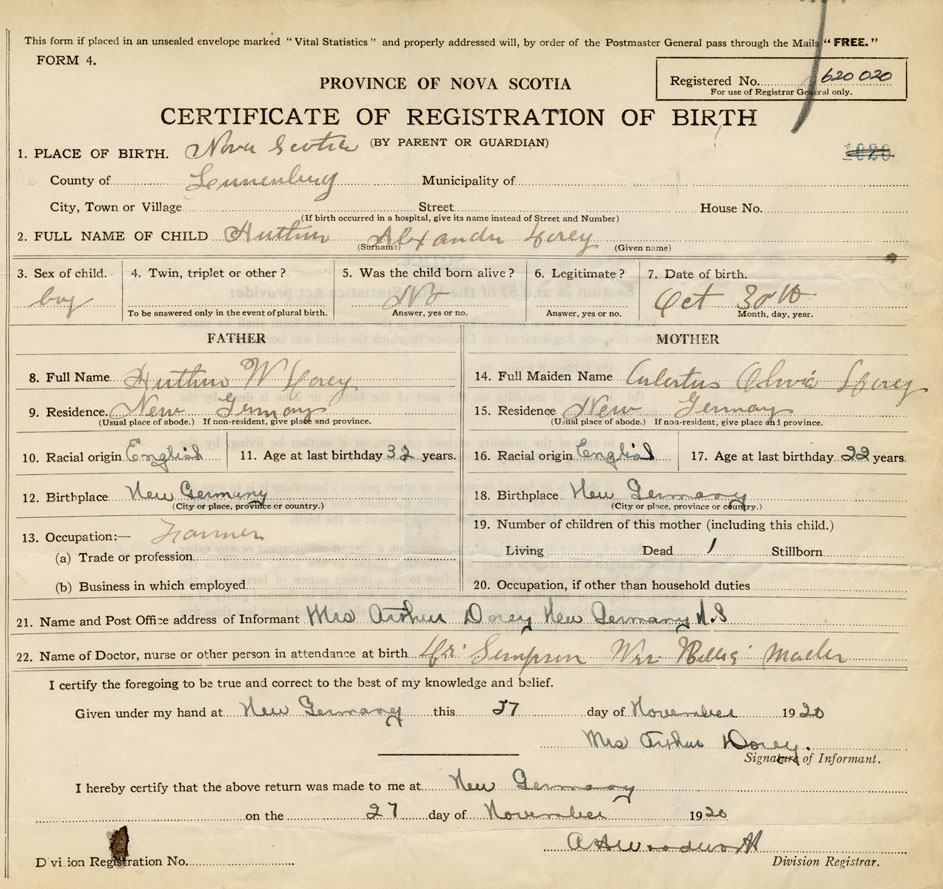 This form if placed in an unsealed envelope marked "Vital Statistics" and properly addressed will, by order of the Postmaster General pass through the Mails "FREE."
FORM 4.
PROVINCE OF NOVA SCOTIA
Registered No. 620020
For use of Registrar General only.
CERTIFICATE OF REGISTRATION OF BIRTH
(BY PARENT OR GUARDIAN)
1. PLACE OF BIRTH. Nova Scotia
County of Lunenburg Municipality of
City, Town or Village Street House No.
(If birth occurred in a hospital, give its name instead of Street and Number)
2. FULL NAME OF CHILD Alexander
(Surname) (Given name)
3. Sex of child. 4. Twin, triplet or other? 5. Was the child born alive? 6. Legitimate? 7. Date of birth.
boy No Oct 30th
To be answered only in the event of plural birth. Answer, yes or no. Answer, yes or no. Month, day, year.
FATHER MOTHER
8. Full Name W 14. Full Maiden Name Olivia
9. Residence. New Germany 15. Residence New Germany
(Usual place of abode.) If non-resident, give place and province. (Usual place of abode.) If non-resident, give place and province.
10. Racial origin English 11. Age at last birthday 32 years. 16. Racial origin English 17. Age at last birthday 22 years.
12. Birthplace New Germany 18. Birthplace New Germany
(City or place, province or country.) (City or place, province or country.)
13. Occupation:— Farmer 19. Number of children of this mother (including this child.)
(a) Trade or profession Living Dead 1 Stillborn
(b) Business in which employed 20. Occupation, if other than household duties
21. Name and Post Office address of Informant Mrs Arthur Dorey New Germany N.S
22. Name of Doctor, nurse or other person in attendance at birth Dr. Simpson Mrs Mader
I certify the foregoing to be true and correct to the best of my knowledge and belief.
Given under my hand at New Germany this 27 day of November 1920
Mrs Arthur Dorey.
Signature of Informant.
I hereby certify that the above return was made to me at New Germany
on the 27 day of November 1920
Division Registration No. Division Registrar.